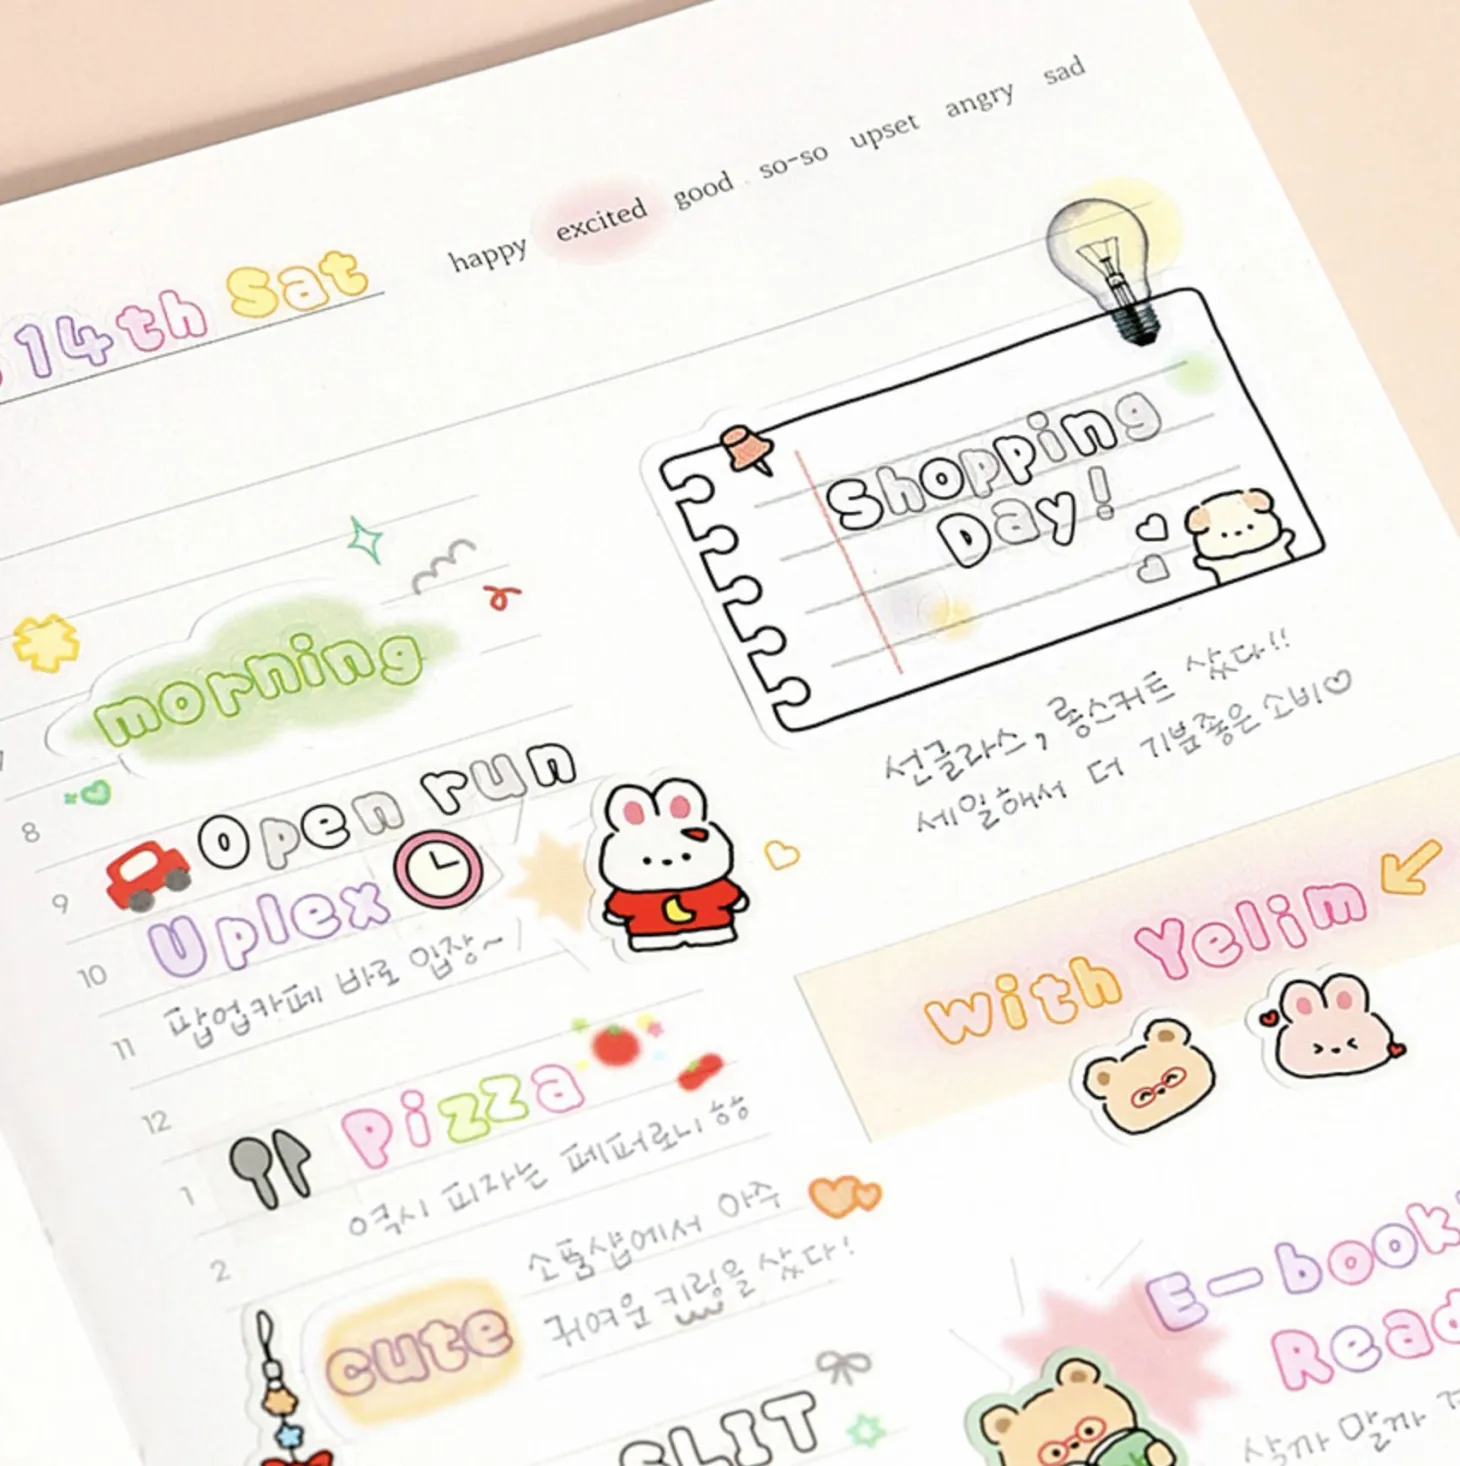 happy excited good so-so upset angry sad
14th Sat
morning
Shopping
Day!
선글라스, 롱스커트 샀다!!
세일해서 더 기분좋은 소비♡
8
Open run
9
Uplex
10
팝업카페 바로 입장~
11
With Yelim
12
Pizza
1
역시 피자는 페퍼로니 ㅎㅎ
2
소품샵에서 아주
귀여운 키링을 샀다!
cute
SLIT
E-book
Read
삭까 말까